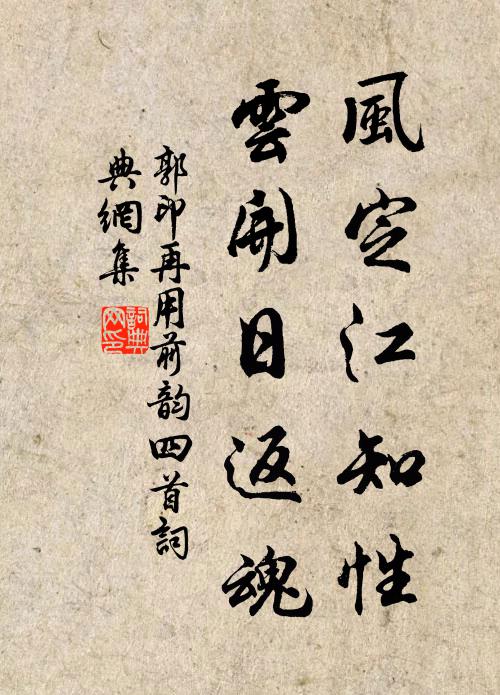 風定江知性
雲開日返魂
郭印再用前韵四首詞
典網集
詞典
网印